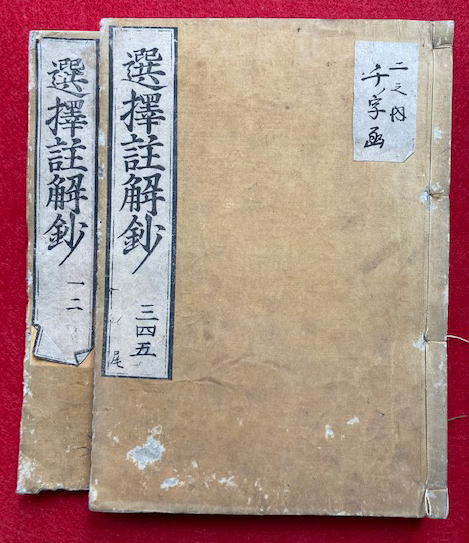 二之内
千字函
選擇註解鈔
三四五
尾
選擇註解鈔
一二